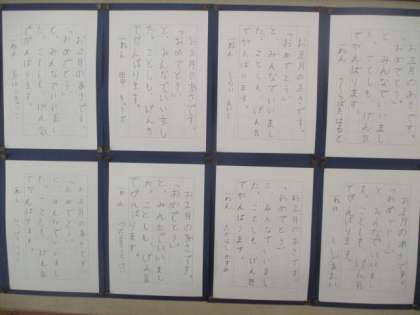 お正月のあさです。
「おめでとう。」
と、みんなでいいまし
た。ことしも、げん気
でがんばります。
一ねん
お正月のあさです。
「おめでとう。」
と、みんなでいいまし
た。ことしも、げん気
でがんばります。
一ねん
お正月のあさです。
「おめでとう。」
と、みんなでいいまし
た。ことしも、げん気
でがんばります。
一ねん
お正月のあさです。
「おめでとう。」
と、みんなでいいまし
た。ことしも、げん気
でがんばります。
一ねん
お正月のあさです。
「おめでとう。」
と、みんなでいいまし
た。ことしも、げん気
でがんばります。
一ねん
お正月のあさです。
「おめでとう。」
と、みんなでいいまし
た。ことしも、げん気
でがんばります。
一ねん
お正月のあさです。
「おめでとう。」
と、みんなでいいまし
た。ことしも、げん気
でがんばります。
一ねん
お正月のあさです。
「おめでとう。」
と、みんなでいいまし
た。ことしも、げん気
でがんばります。
一ねん